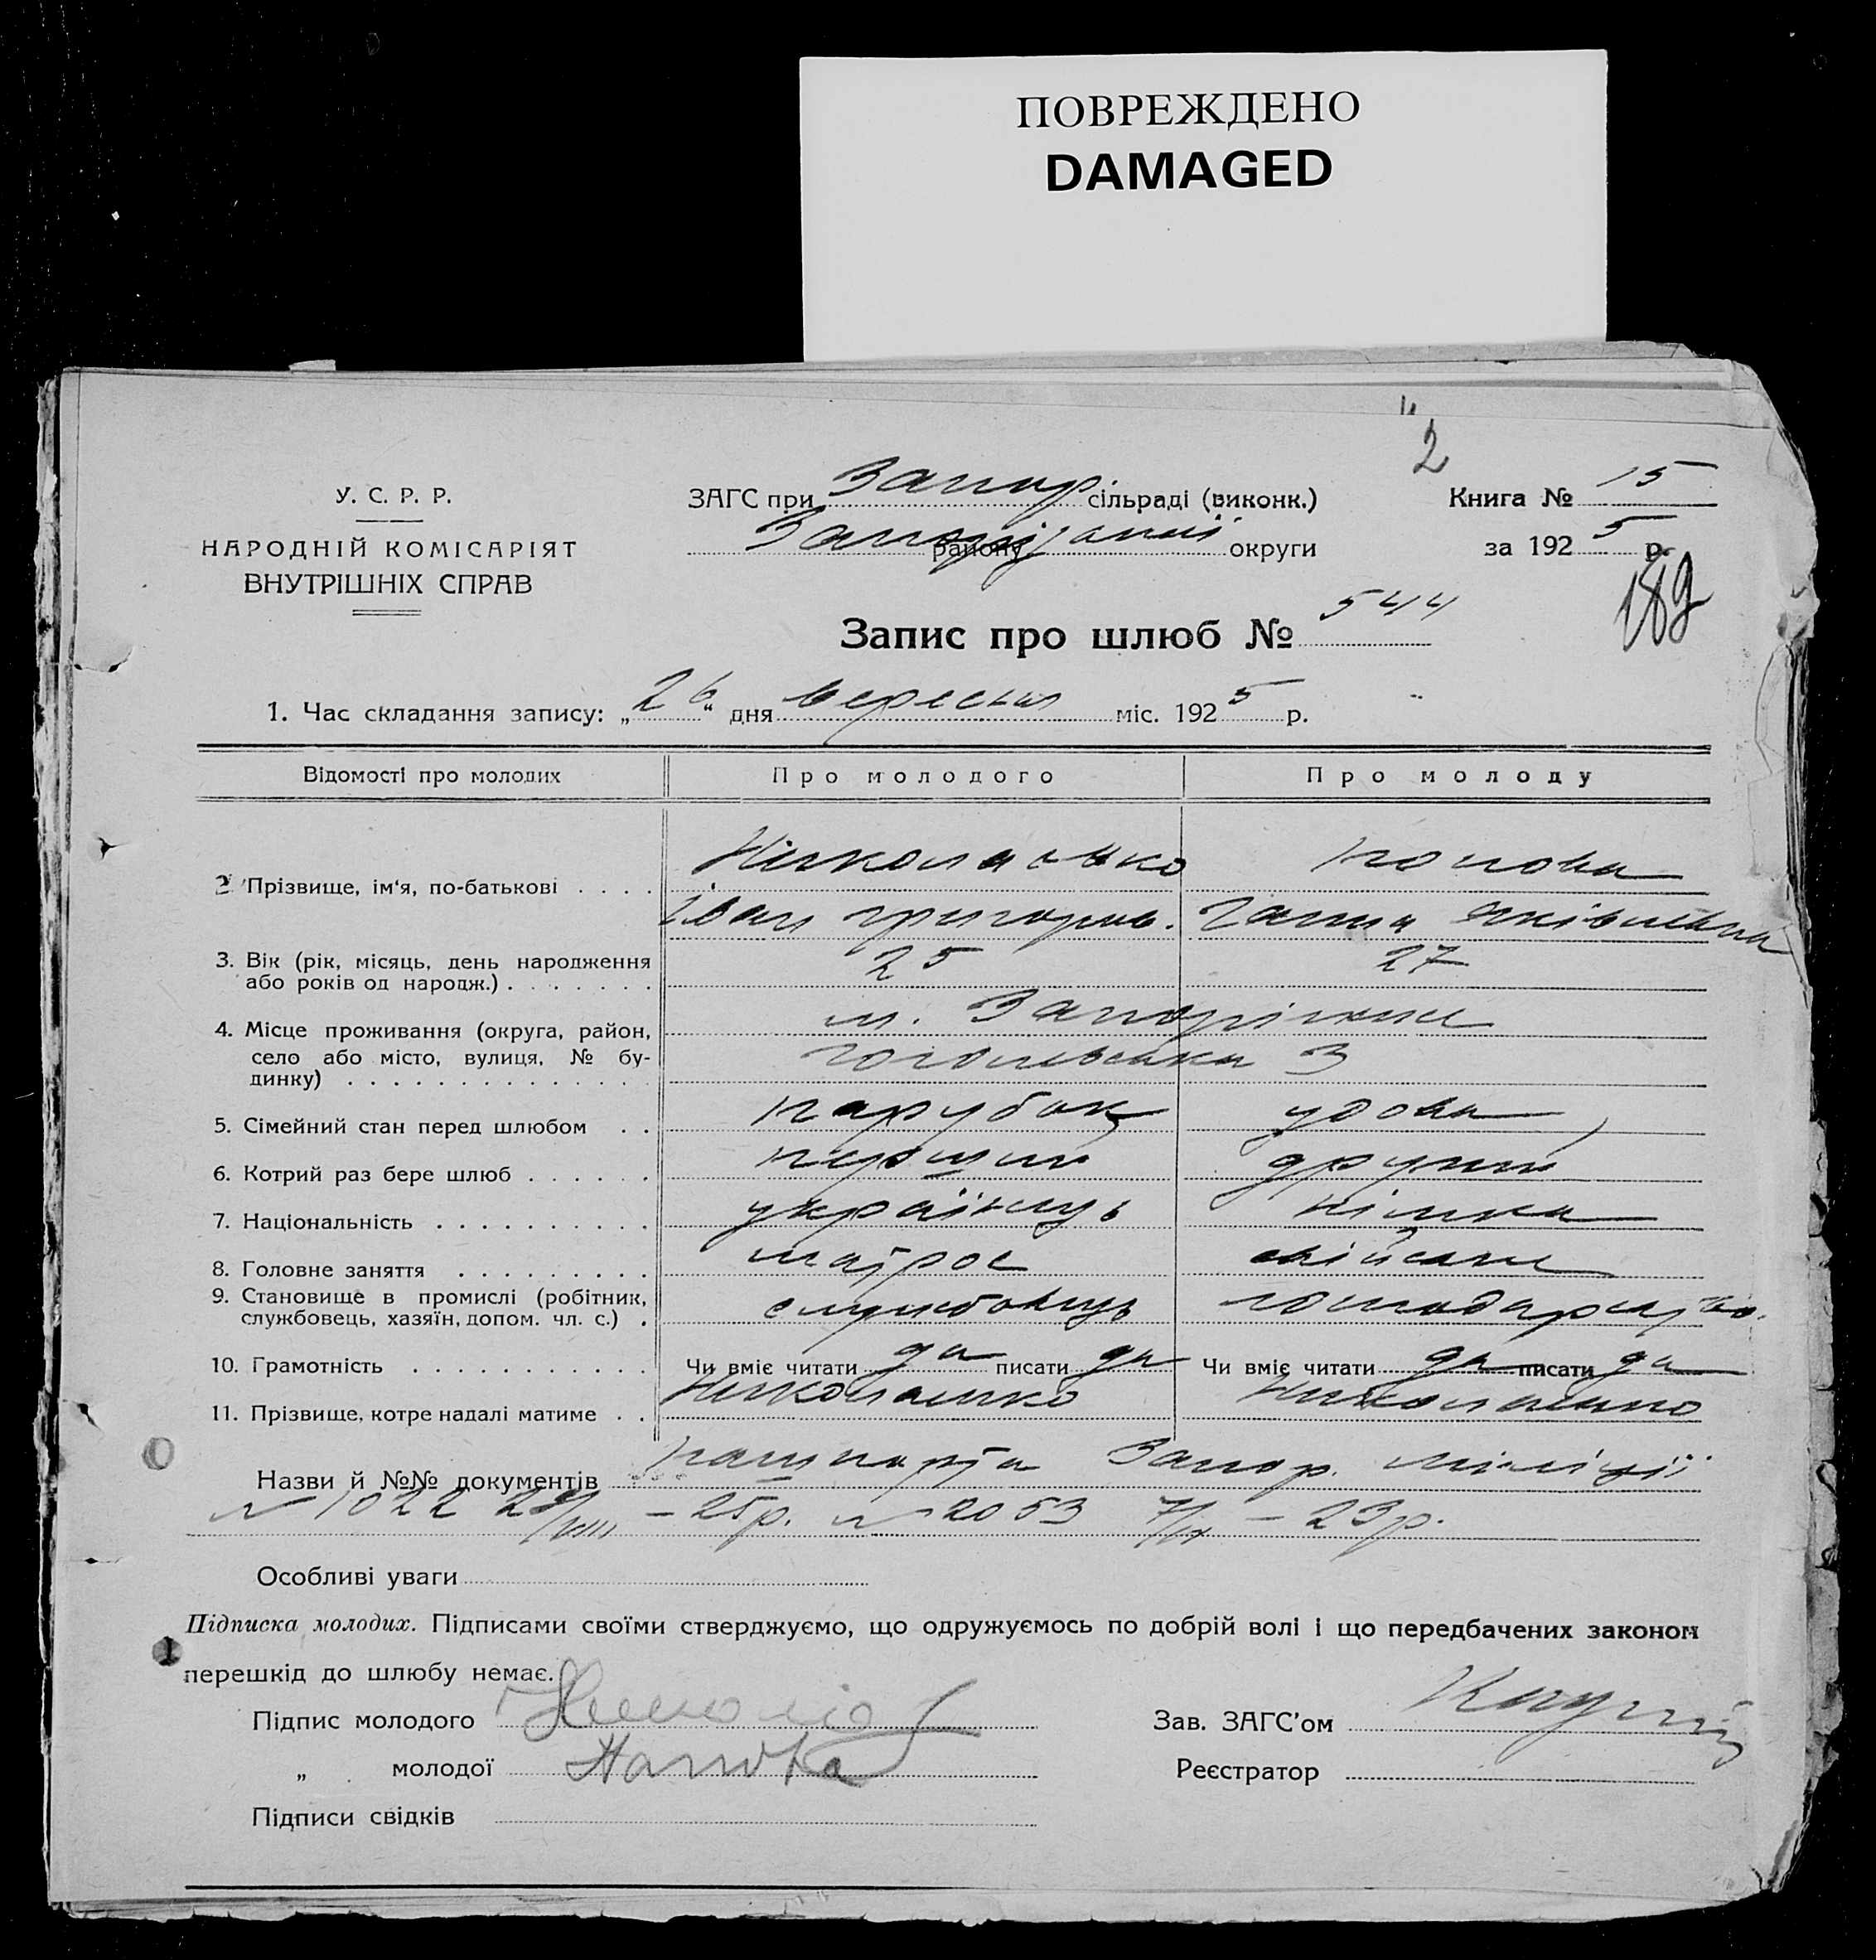 ПОВРЕЖДЕНО
DAMAGED
2
У. С. Р. Р.
НАРОДНІЙ КОМІСАРІЯТ
ВНУТРІШНІХ СПРАВ
ЗАГС при Запор. сільраді (виконк.)
району округи
Книга № 15
за 1925 р.
189
Запис про шлюб № 544
1. Час складання запису: „26“ дня вересня міс. 1925 р.
Відомості про молодих Про молодого Про молоду
2 Прізвище, ім‘я, по-батькові . . . . Попова
Іван Григоров. Ганна Яківлевна
3. Вік (рік, місяць, день народження
або років од народж.) . . . . . . . 25 27
4. Місце проживання (округа, район, м. Запоріжжя
село або місто, вулиця, № бу- Гоголівська 3
динку) . . . . . . . . . . . . . .
5. Сімейний стан перед шлюбом . . парубок удова
6. Котрий раз бере шлюб . . . . . . перший другий
7. Національність . . . . . . . . . . українець німка
8. Головне заняття . . . . . . . . . матрос хатнє
9. Становище в промислі (робітник,
службовець, хазяїн, допом. чл. с.) . службовець господарство.
10. Грамотність . . . . . . . . . . . . Чи вміє читати да писати да Чи вміє читати да писати да
11. Прізвище, котре надалі матиме . . Николаенко Николаенко
Назви й №№ документів Запор. міліції
№ 1022 /VIII – 25р. № 2053 7/IX – 23р.
Особливі уваги
Підписка молодих. Підписами своїми стверджуємо, що одружуємось по добрій волі і що передбачених законом
перешкід до шлюбу немає.
Підпис молодого
Зав. ЗАГС’ом
„ молодої Попова
Реєстратор
Підписи свідків